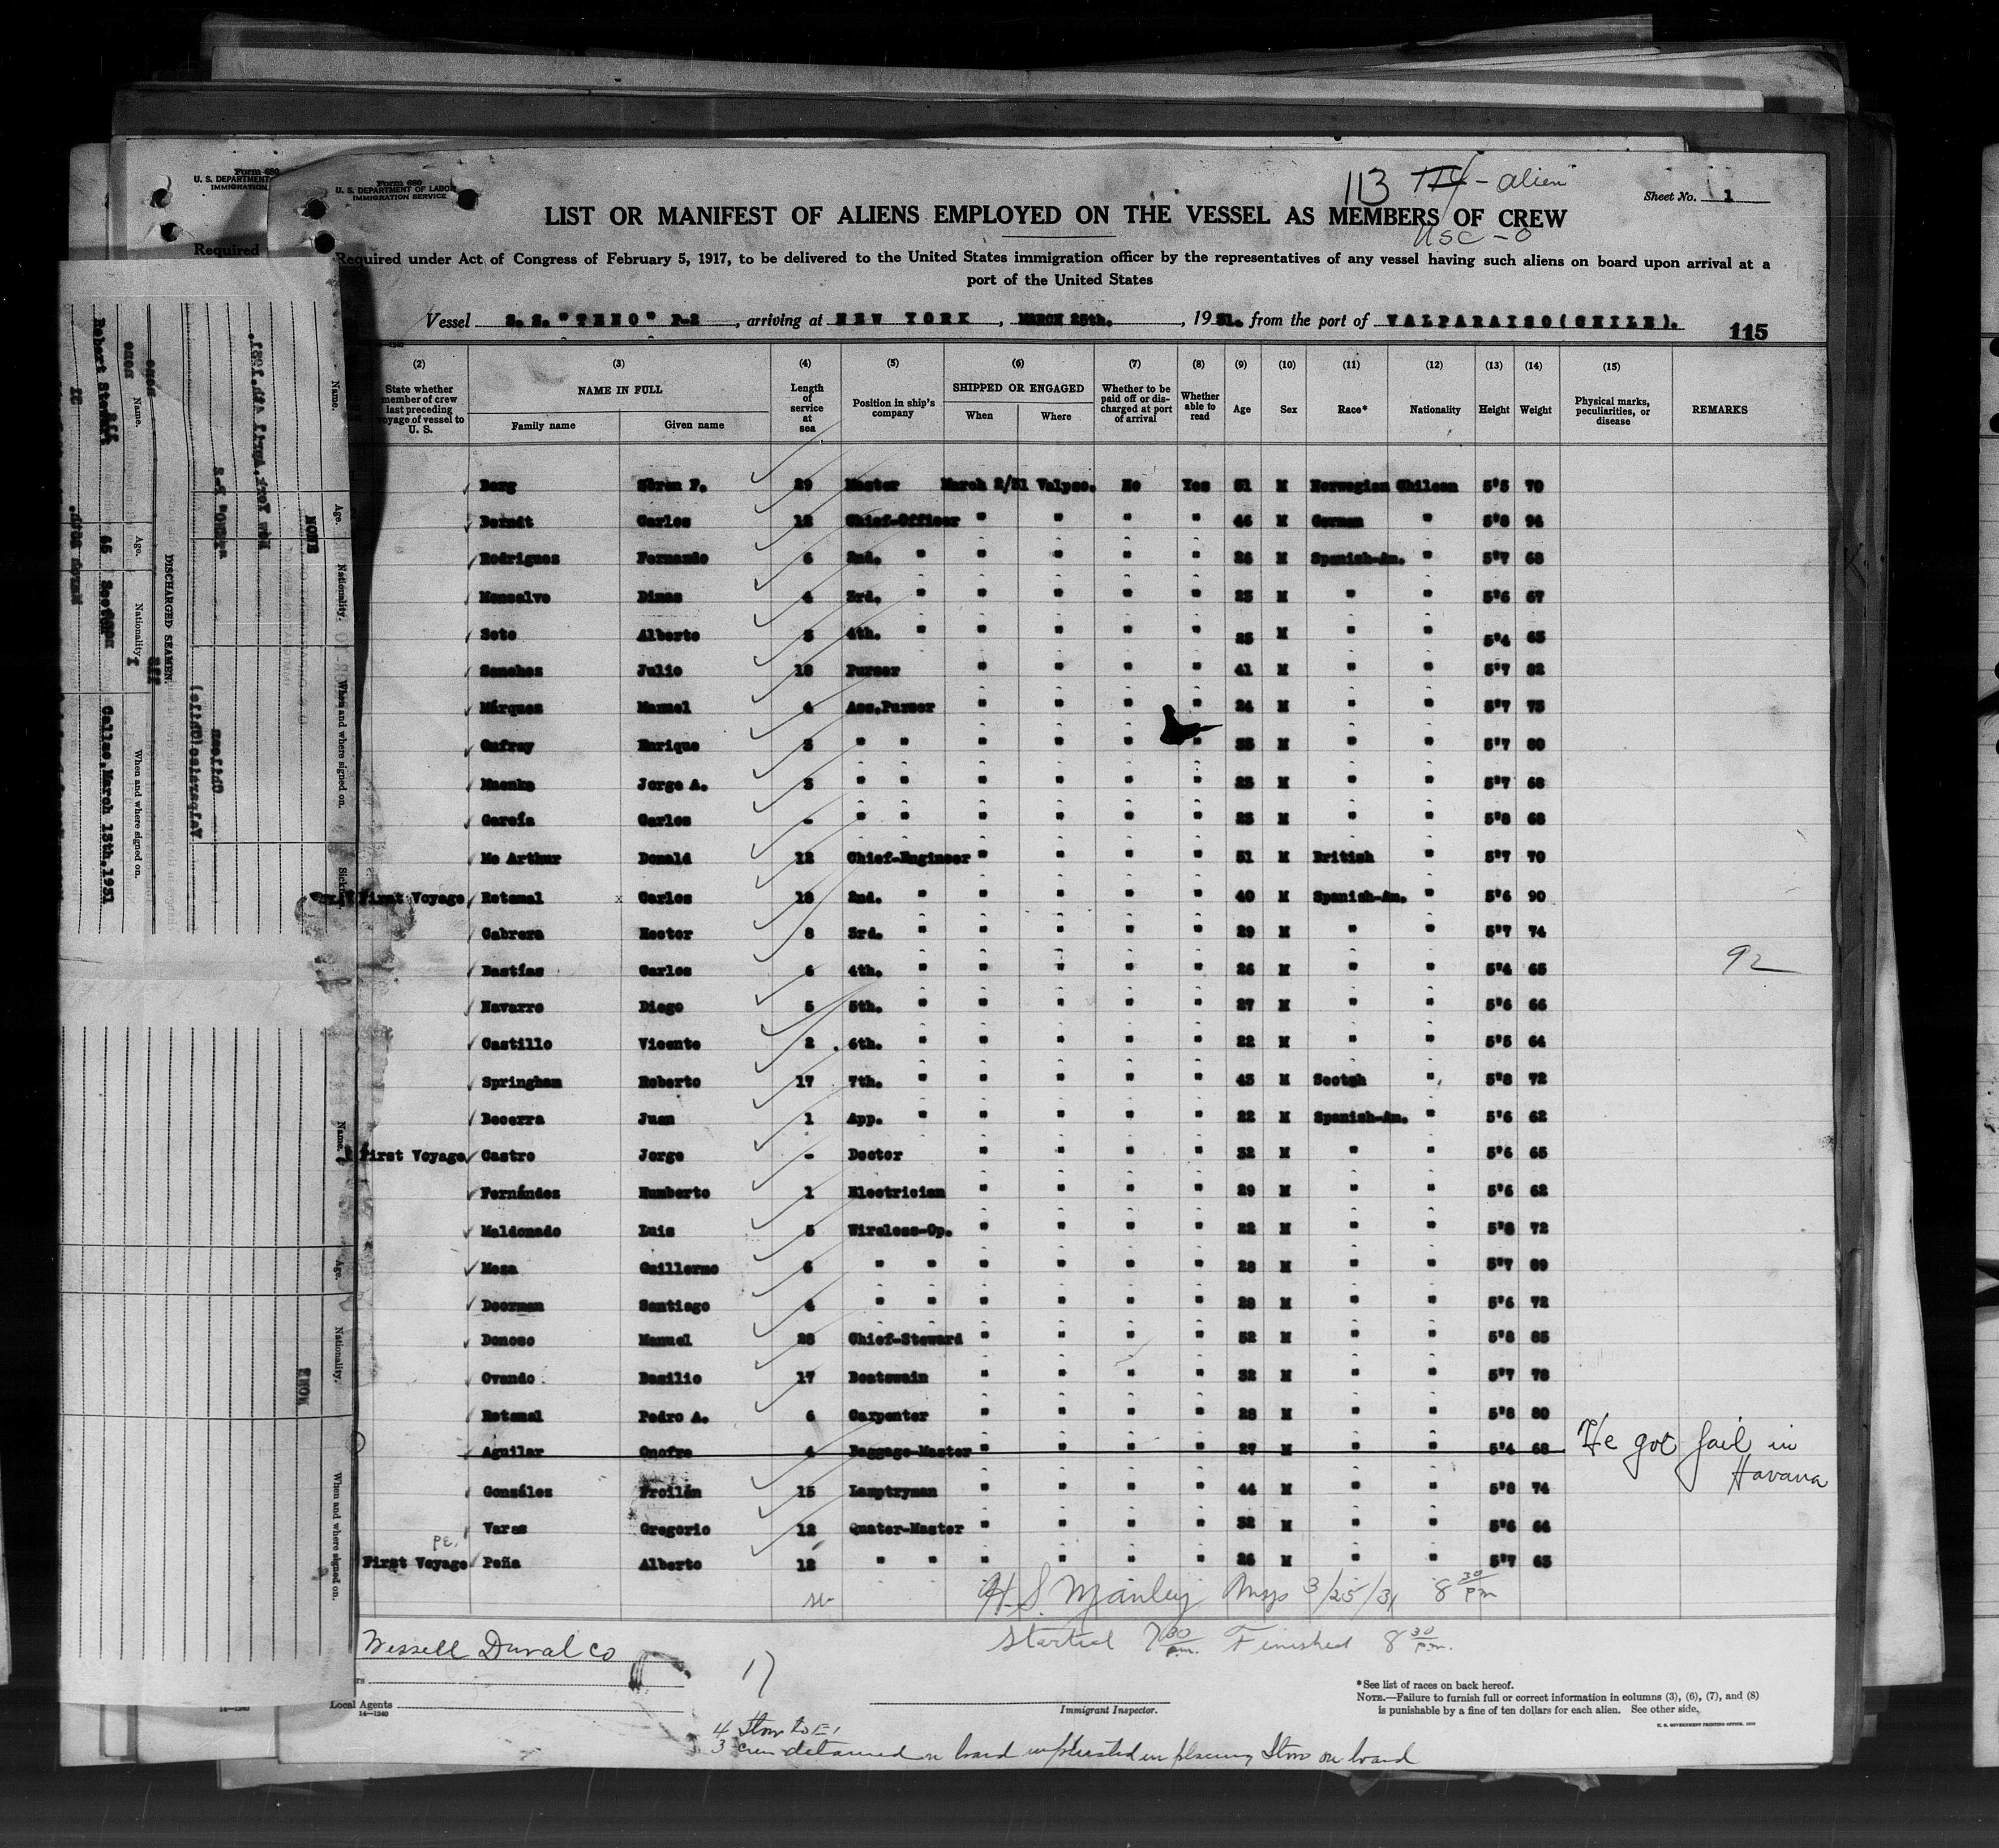 Form 680
U. S. DEPARTMENT OF LABOR
IMMIGRATION SERVICE
113 114 - alien
USC - 0
Sheet No. 1
LIST OR MANIFEST OF ALIENS EMPLOYED ON THE VESSEL AS MEMBERS OF CREW
Required under Act of Congress of February 5, 1917, to be delivered to the United States immigration officer by the representatives of any vessel having such aliens on board upon arrival at a
port of the United States
Vessel S. S. "TENO" P-2, arriving at NEW YORK, MARCH 25th., 1931. from the port of VALPARAISO(CHILE). 115
(2) (3) (4) (5) (6) (7) (8) (9) (10) (11) (12) (13) (14) (15)
State whether member of crew last preceding voyage of vessel to U. S. NAME IN FULL Family name Given name Length of service at sea Position in ship's company SHIPPED OR ENGAGED When Where Whether to be paid off or discharged at port of arrival Whether able to read Age Sex Race* Nationality Height Weight Physical marks, peculiarities, or disease REMARKS
Berg Sören F. 29 Master March 2/31 Valpso. No Yes 51 M Norwegian Chilean 5'5 70
Berndt Carlos 12 Chief-Officer " " " " 46 M German " 5'8 94
Rodriguez Fernando 6 2nd. " " " " " 26 M Spanish-Am. " 5'7 68
Monsalve Dimas 4 3rd. " " " " " 23 M " " 5'6 67
Soto Alberto 3 4th. " " " " " 25 M " " 5'4 65
Sanchez Julio 18 Purser " " " " 41 M " " 5'7 82
Márquez Manuel 4 Ass.Purser " " " " 24 M " " 5'7 73
Enrique 3 " " " " " " M " " 5'7 80
Jorge A. 3 " " " " " " 23 M " " 5'7 68
García Carlos - " " " " " " 23 M " " 5'8 68
Mc Arthur Donald 12 Chief-Engineer " " " " 51 M British " 5'7 70
First Voyage Retamal x Carlos 18 2nd. " " " " " 40 M Spanish-Am. " 5'6 90
Cabrera Hector 8 3rd. " " " " " 29 M " " 5'7 74
Bastías Carlos 6 4th. " " " " " 26 M " " 5'4 65
92
Navarro Diego 5 5th. " " " " " 27 M " " 5'6 66
Castillo Vicente 2 6th. " " " " " 22 M " " 5'5 64
Springham Roberto 17 7th. " " " " " 45 M Scotgh " 5'8 72
Becerra Juan 1 App. " " " " " 22 M Spanish-Am. " 5'6 62
First Voyage Castro Jorge - Doctor " " " " 32 M " " 5'6 65
Fernández Humberto 1 Electrician " " " " 29 M " " 5'6 62
Maldonado Luis 5 Wireless-Op. " " " " 22 M " " 5'8 72
Mesa Guillermo 6 " " " " " " 28 M " " 5'7 89
Doorman Santiago 4 " " " " " " 28 M " " 5'6 72
Donoso Manuel 28 Chief-Steward " " " " 52 M " " 5'8 85
Ovando Basilio 17 Boatswain " " " " 32 M " " 5'7 78
Retamal Pedro A. 6 Carpenter " " " " 28 M " " 5'8 80
Aguilar Onofre 4 Baggage-Master " " " " 27 M " " 5'4 68 He got jail in
Havana
González Froilán 15 Lamptryman " " " " 44 M " " 5'8 74
Varas Gregorio 12 Quater-Master " " " " 32 M " " 5'6 64
First Voyage Peña Alberto 12 " " " " " " 26 M " " 5'7 63
H. S. Manley 3/25/31 8 30 pm
Started 7 30 p.m. Finished 8 30 p.m.
Wessell Duval Co
17
Local Agents
14—1240
Immigrant Inspector.
*See list of races on back hereof.
NOTE.—Failure to furnish full or correct information in columns (3), (6), (7), and (8)
is punishable by a fine of ten dollars for each alien. See other side.
U. S. GOVERNMENT PRINTING OFFICE
4 Stow to E I
3 crew detained on board implicated in placing Stows on board
Form 680
U. S. DEPARTMENT
IMMIGRATION
Required
DISCHARGED SEAMEN.
Name. Age. Nationality. When and where signed on.
Robert Stewart 65 Scotch Callao, March 13th, 1931
NONE
Name. Age. Nationality. When and where signed on.
NONE